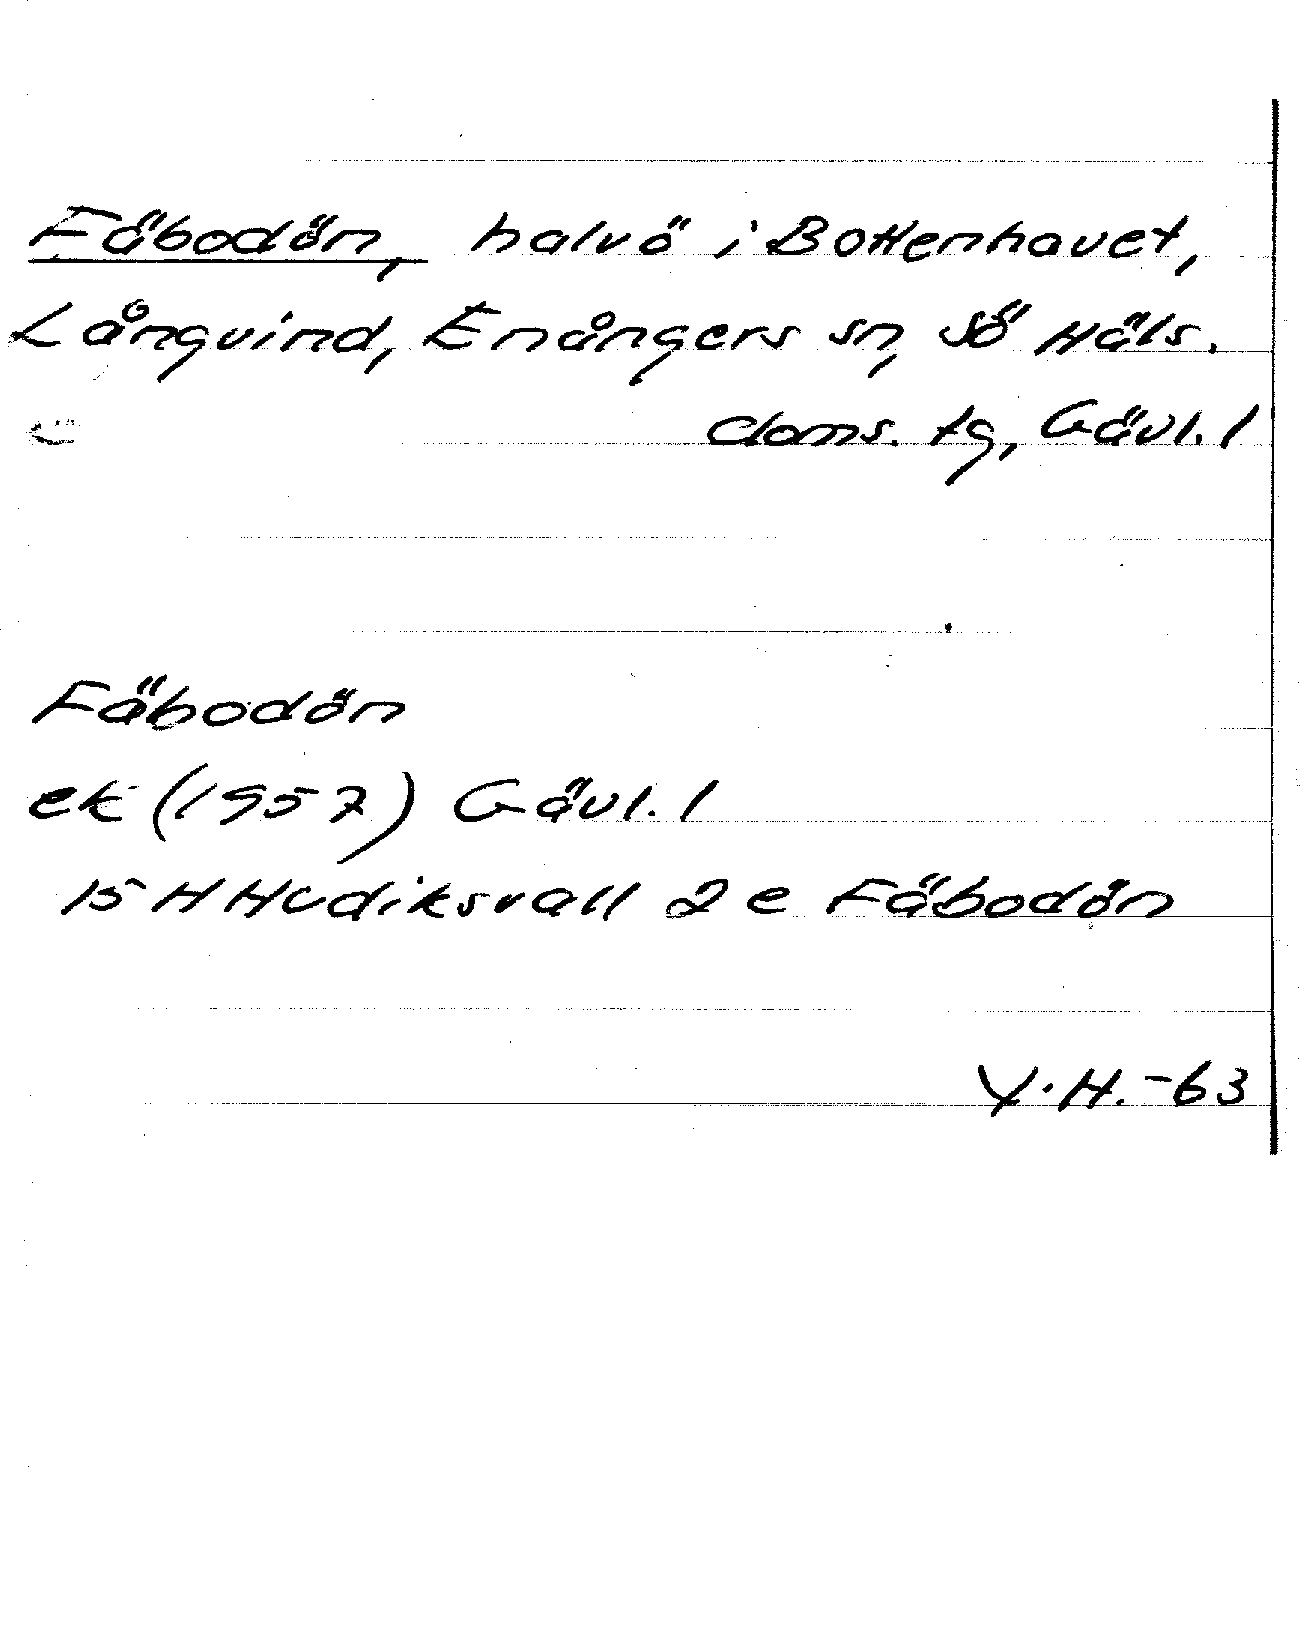 Fäbodön, halvö i Bottenhavet,
Långvind, Enångers sn, Sö Häls.
doms. tg, Gävl. l
Fäbodön
ek (1957) Gävl. l
15 H Hudiksvall 2 e Fäbodön
Y. H. -63